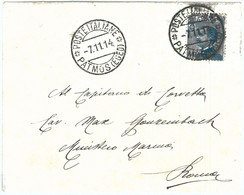 POSTE ITALIANE
-7.11.14
PATMOS (EGEO)
POSTE ITALIANE
-7.11.14
PATMOS
Al Capitano di Corvetta
Cav. Max
Ministero Marina
Roma